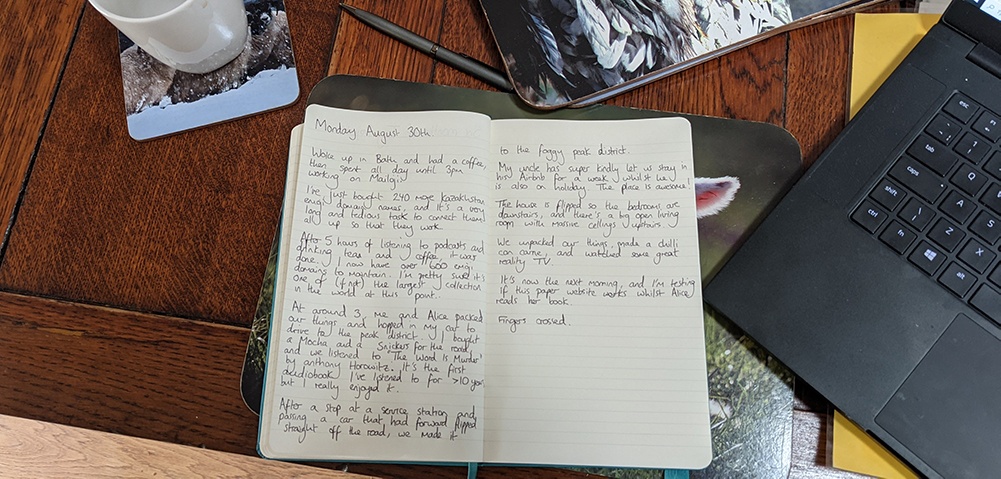 Monday August 30th
Woke up in Bath and had a coffee,
then spent all day until 3pm
working on Mailoji.
I've just bought 240 more Kazakhstan
emoji domain names, and it's a very
long and tedious task to connect them
all up so that they work.
After 5 hours of listening to podcasts and
drinking teas and coffee, it was
done. I now have over 600 emoji
domains to maintain. I'm pretty sure it's
one of (if not) the largest collection
in the world at this point.
At around 3, me and Alice packed
our things and hopped in my car to
drive to the peak district. I bought
a Mocha and a Snickers for the road,
and we listened to 'The Word is Murder'
by anthony Horowitz. It's the first
audiobook I've listened to for >10 years
but I really enjoyed it.
After a stop at a service station and
passing a car that had forward flipped
straight off the road, we made it
to the foggy peak district.
My uncle has super kindly let us stay in
his Airbnb for a week, whilst he
is also on holiday. The place is awesome!
The house is flipped so the bedrooms are
downstairs, and there's a big open living
room with massive ceilings upstairs.
We unpacked our things, made a chilli
con carne, and watched some great
reality TV.
It's now the next morning, and I'm testing
if this paper website works whilst Alice
reads her book.
Fingers crossed.
esc
caps
shift
ctrl
fn
alt
1
2
Q
A
S
Z
X